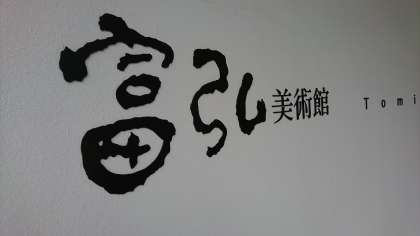 富弘美術館 Tomi